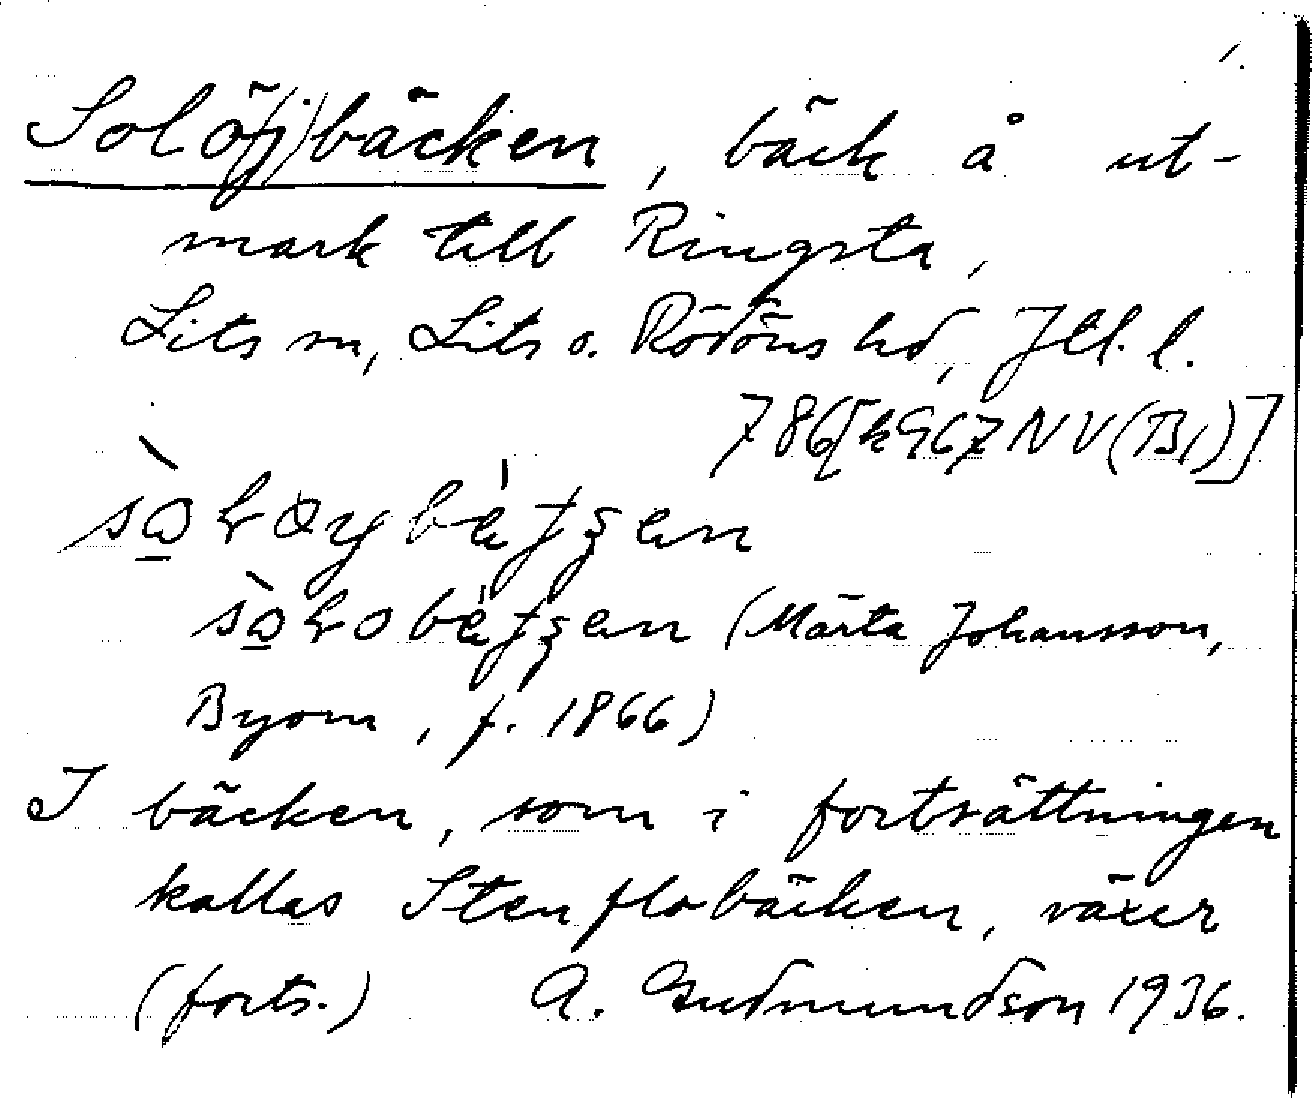 1.
Solö(j)bäcken, bäck å ut-
mark till Ringsta,
Lits sn, Lits o. Rödöns hd, Jtl. l.
786[k967NV(B1)]
(Märta Johansson,
Byom, f. 1866)
I bäcken, som i fortsättningen
kallas Stenflobäcken, växer
(forts.) A. Gudmundson 1936.